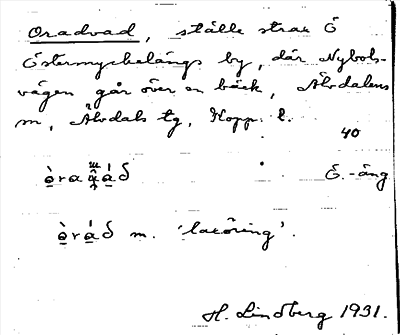 Oradvad, ställe strax Ö
Östermyckelängs by, där Nybols-
vägen går över en bäck, Älvdalens
sn, Älvdals tg, Kopp. l.
40
Ö.-äng
òrád m. 'laxöring'.
H. Lindberg 1931.